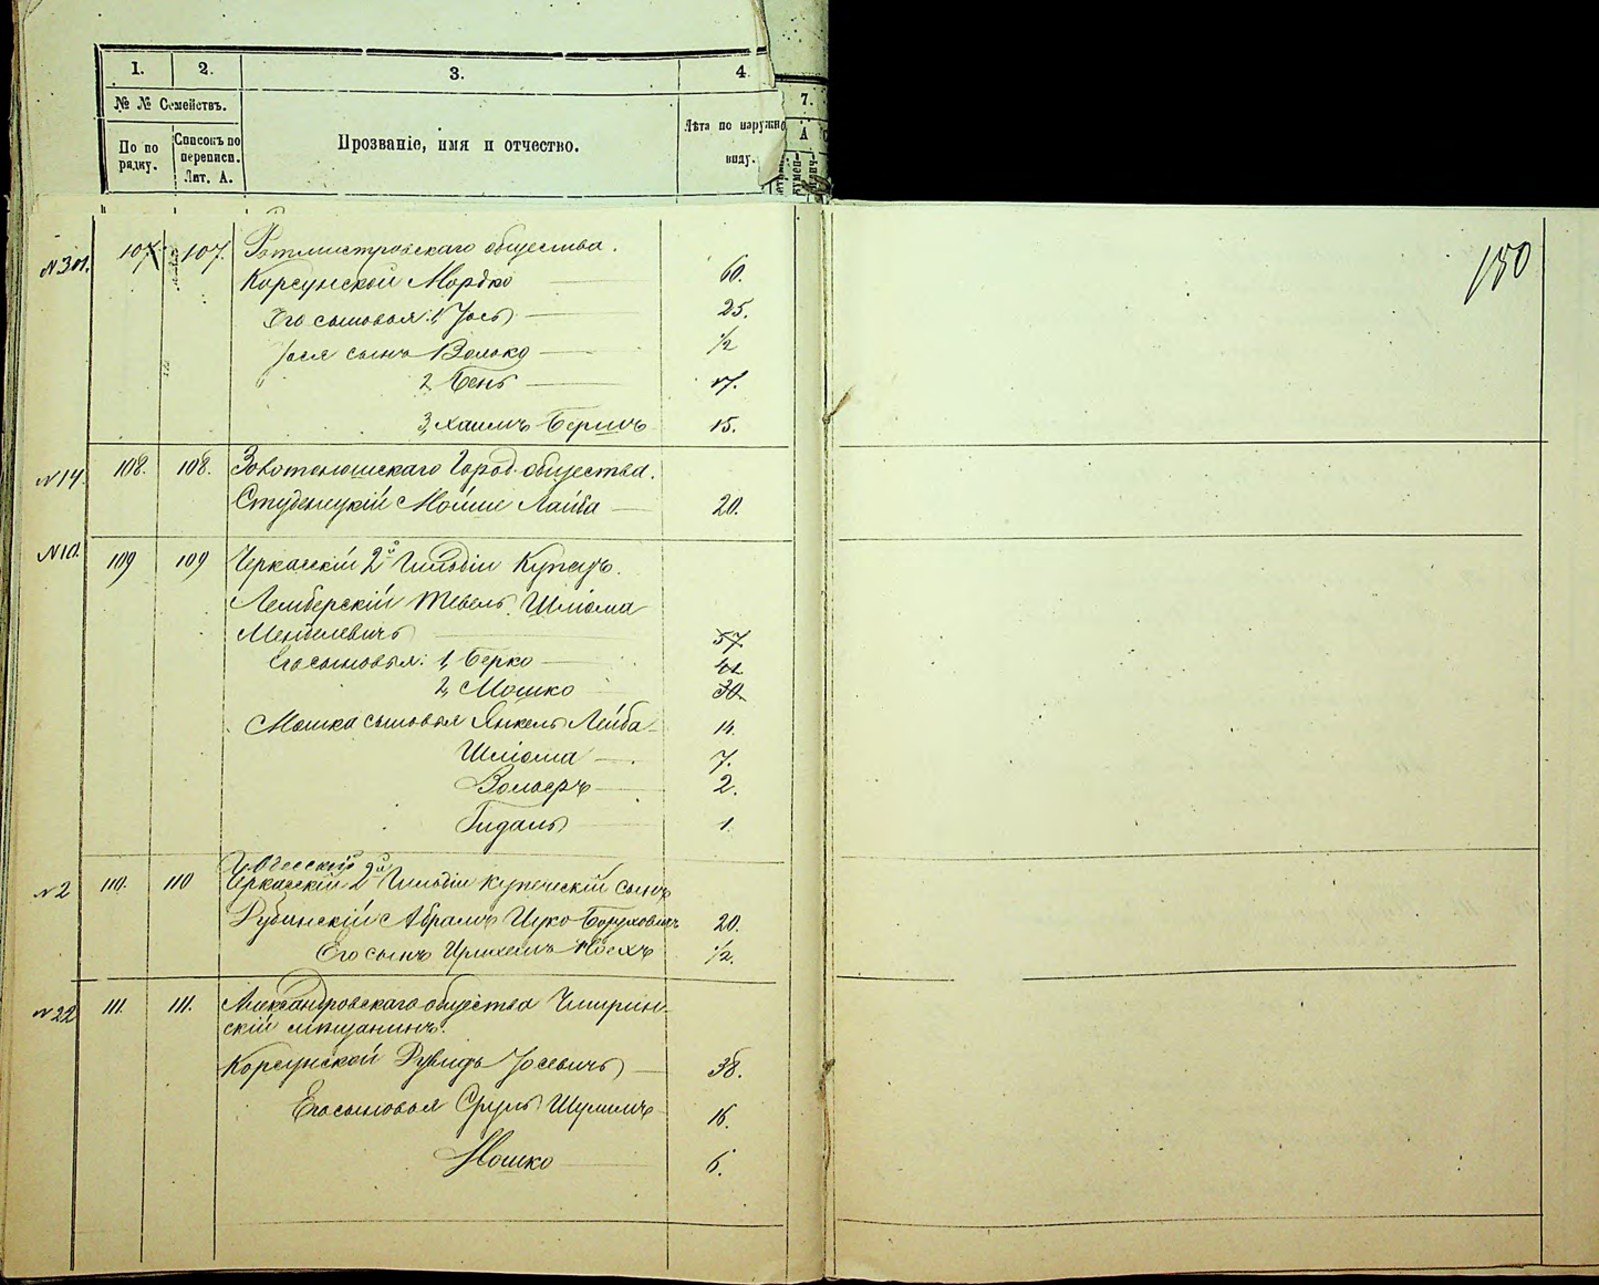 1. 2. 3. 4 7.
№ № Семействъ. А
По по рядку. Списокъ по переписи. Лит. А. Прозваніе, имя и отчество. Лѣта по наружно виду.
150
№301. 107 107. Ротмистровскаго общества.
Корсунской Мордко 60.
Его сыновья: 1, Іось 25.
Іося сынъ Волько 1/2
2, Бень 17.
3, Хаимъ Беримъ 15.
№14. 108. 108. Золотоношскаго Город. общества.
Студенецкій Мойше Лейба 20.
№10. 109 109 Черкасскій 2й Гильдіи Купецъ.
Лемберскій Тевель Шліома
Менделевичъ 57
Его сыновья: 1, Берко
2, Мошко 30
Мошка сыновья Янкель Лейба 14.
Шліома 7.
Вольеръ 2.
Гидаль 1.
Одесскій 2й
№2 110. 110 Черкасскій 2 Гильдіи купеческій сынъ
Рубинскій Абрамъ Ицко Боруховичъ 20.
Его сынъ 1/2.
№22 111. 111. Александровскаго общества Чигирин-
скій мѣщанинъ.
Корсунской Рувидъ Іосевичъ 38.
Его сыновья Сруль Шулимъ 16.
Мошко 6.